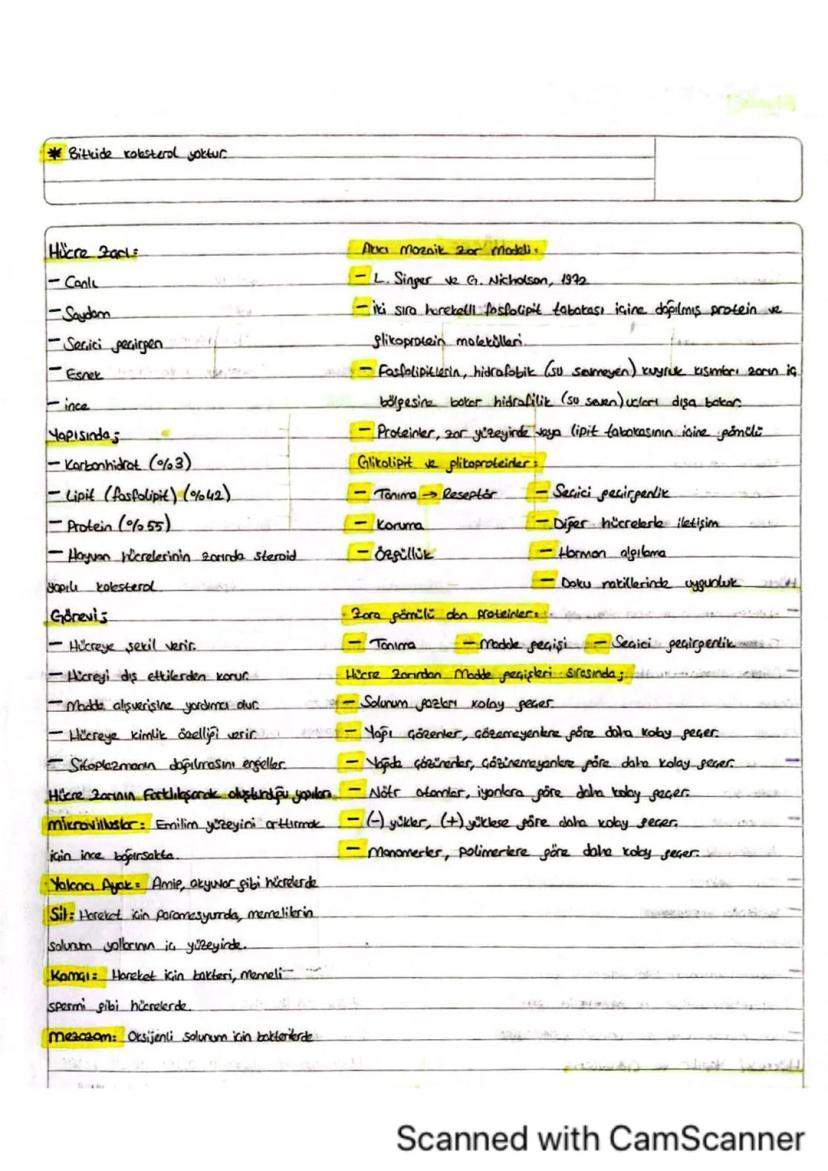 * Bitkide kolesterol yoktur.
Hücre Zarı:
- Canlı
- Saydam
- Seçici geçirgen
- Esnek
- ince
Yapısında;
- Karbonhidrat (%3)
- Lipit (fosfolipit) (%42)
- Protein (%55)
- Hayvan hücrelerinin zarında steroid
yapılı kolesterol
Görevi;
- Hücreye şekil verir.
- Hücreyi dış etkilerden korur.
- Madde alışverişine yardımcı olur.
- Hücreye kimlik özelliği verir.
- Sitoplazmanın dağılmasını engeller.
Hücre Zarının Farklılaşarak oluşturduğu yapılar:
mikrovilluslar: Emilim yüzeyini arttırmak
için ince bağırsakta.
Yalancı Ayak: Amip, akyuvar gibi hücrelerde
Sil: Hareket için paramesyumda, memelilerin
solunum yollarının iç yüzeyinde.
Kamçı: Hareket için bakteri, memeli
spermi gibi hücrelerde.
mezozom: Oksijenli solunum için bakterilerde
Akıcı mozaik zar modeli:
- L. Singer ve G. Nicholson, 1972
- iki sıra hareketli fosfolipit tabakası içine dağılmış protein ve
glikoprotein molekülleri.
- Fosfolipitlerin, hidrofobik (su sevmeyen) kuyruk kısımları zarın iç
bölgesine bakar hidrofilik (su seven) uçları dışa bakar.
- Proteinler, zar yüzeyinde veya lipit tabakasının içine gömülü
Glikolipit ve glikoproteinler:
- Tanıma → Reseptör - Seçici geçirgenlik
- Koruma - Diğer hücrelerle iletişim
- Özgüllük - Hormon algılama
- Doku nakillerinde uygunluk
Zara gömülü olan proteinler:
- Tanıma - Madde geçişi - Seçici geçirgenlik
Hücre Zarından Madde geçişleri sırasında;
- Solunum gazları kolay geçer.
- Yağı çözenler, çözemeyenlere göre daha kolay geçer.
- Yağda çözünenler, çözünemeyenlere göre daha kolay geçer.
- Nötr atomlar, iyonlara göre daha kolay geçer.
- (-) yükler, (+) yüklere göre daha kolay geçer.
- Monomerler, polimerlere göre daha kolay geçer.
Scanned with CamScanner